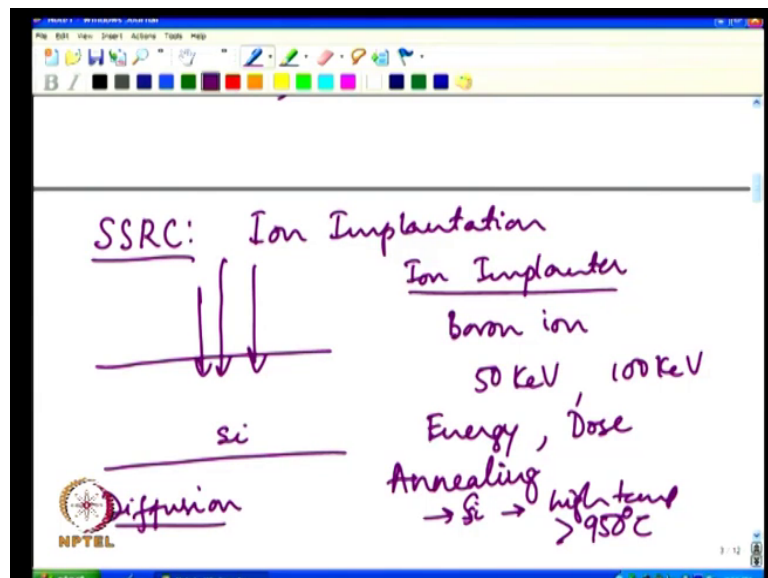 Note1 - Windows Journal
File Edit View Insert Actions Tools Help
B I
SSRC: Ion Implantation
Ion Implanter
Boron ion
50 KeV, 100 KeV
Si
Energy, Dose
Annealing
→ Si → high temp
> 950°C
Diffusion
NPTEL
3 / 12